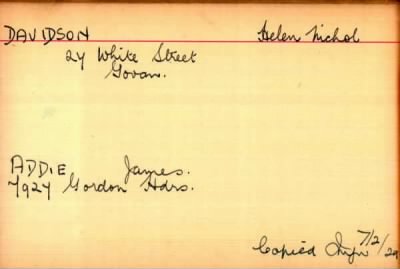 DAVIDSON Helen Nichol
27 White Street
Govan.
ADDIE James.
7927 Gordon Hdrs.
Copied 7/2/29